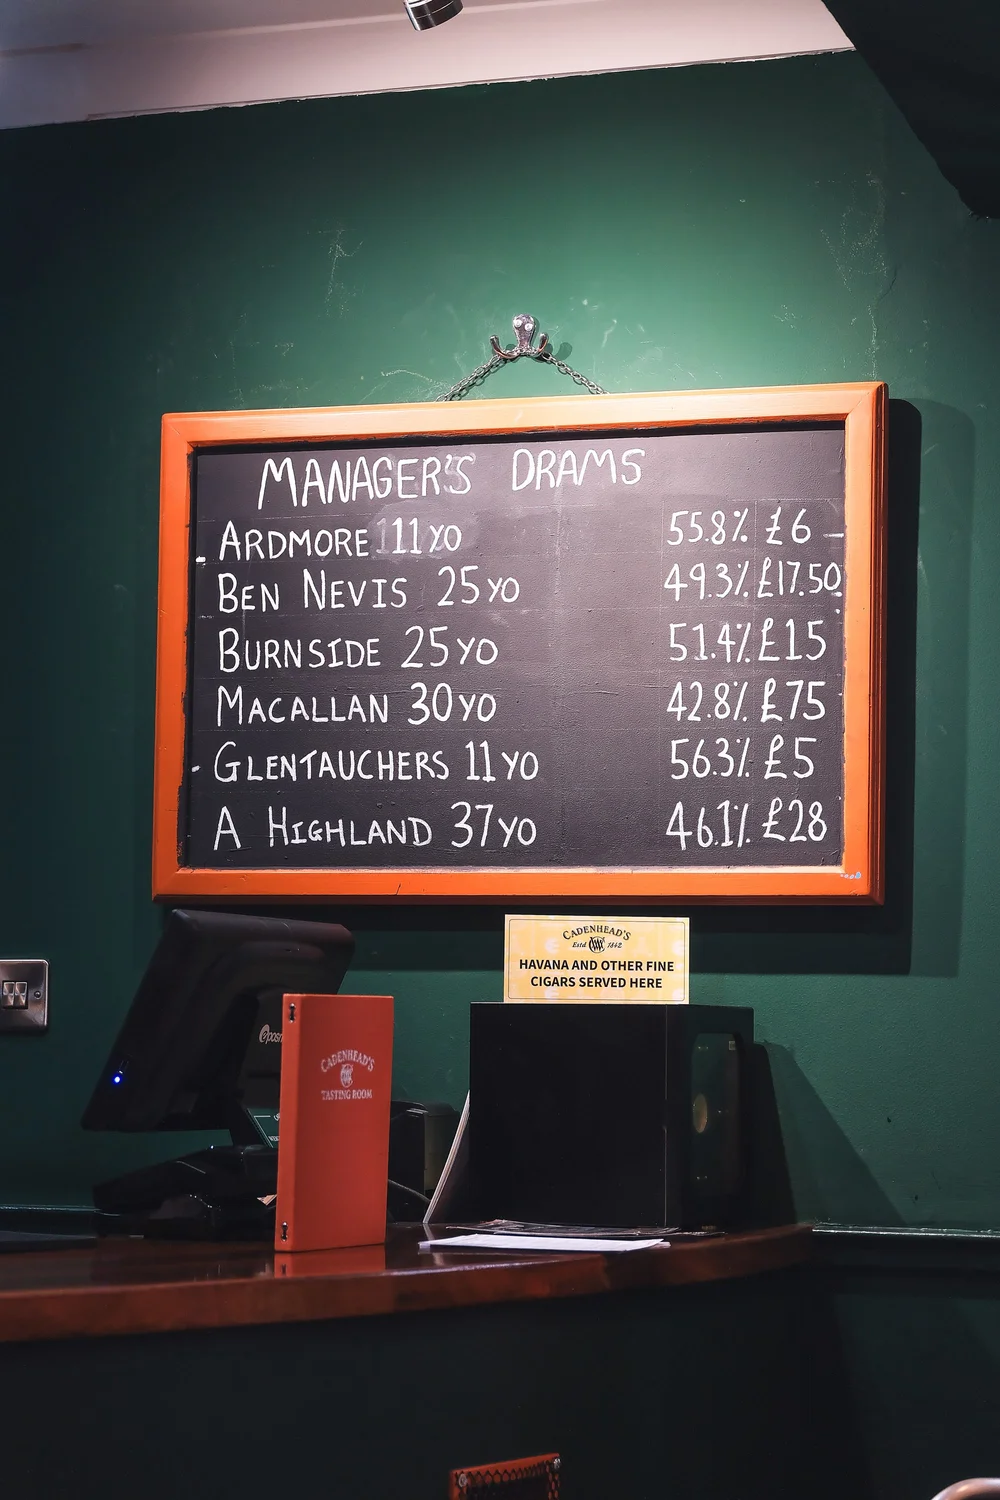 MANAGER'S DRAMS
ARDMORE 11YO 55.8% £6
BEN NEVIS 25YO 49.3% £17.50
BURNSIDE 25YO 51.4% £15
MACALLAN 30YO 42.8% £75
GLENTAUCHERS 11YO 56.3% £5
A HIGHLAND 37YO 46.1% £28
CADENHEAD'S
Estd 1842
HAVANA AND OTHER FINE
CIGARS SERVED HERE
CADENHEAD'S
TASTING ROOM